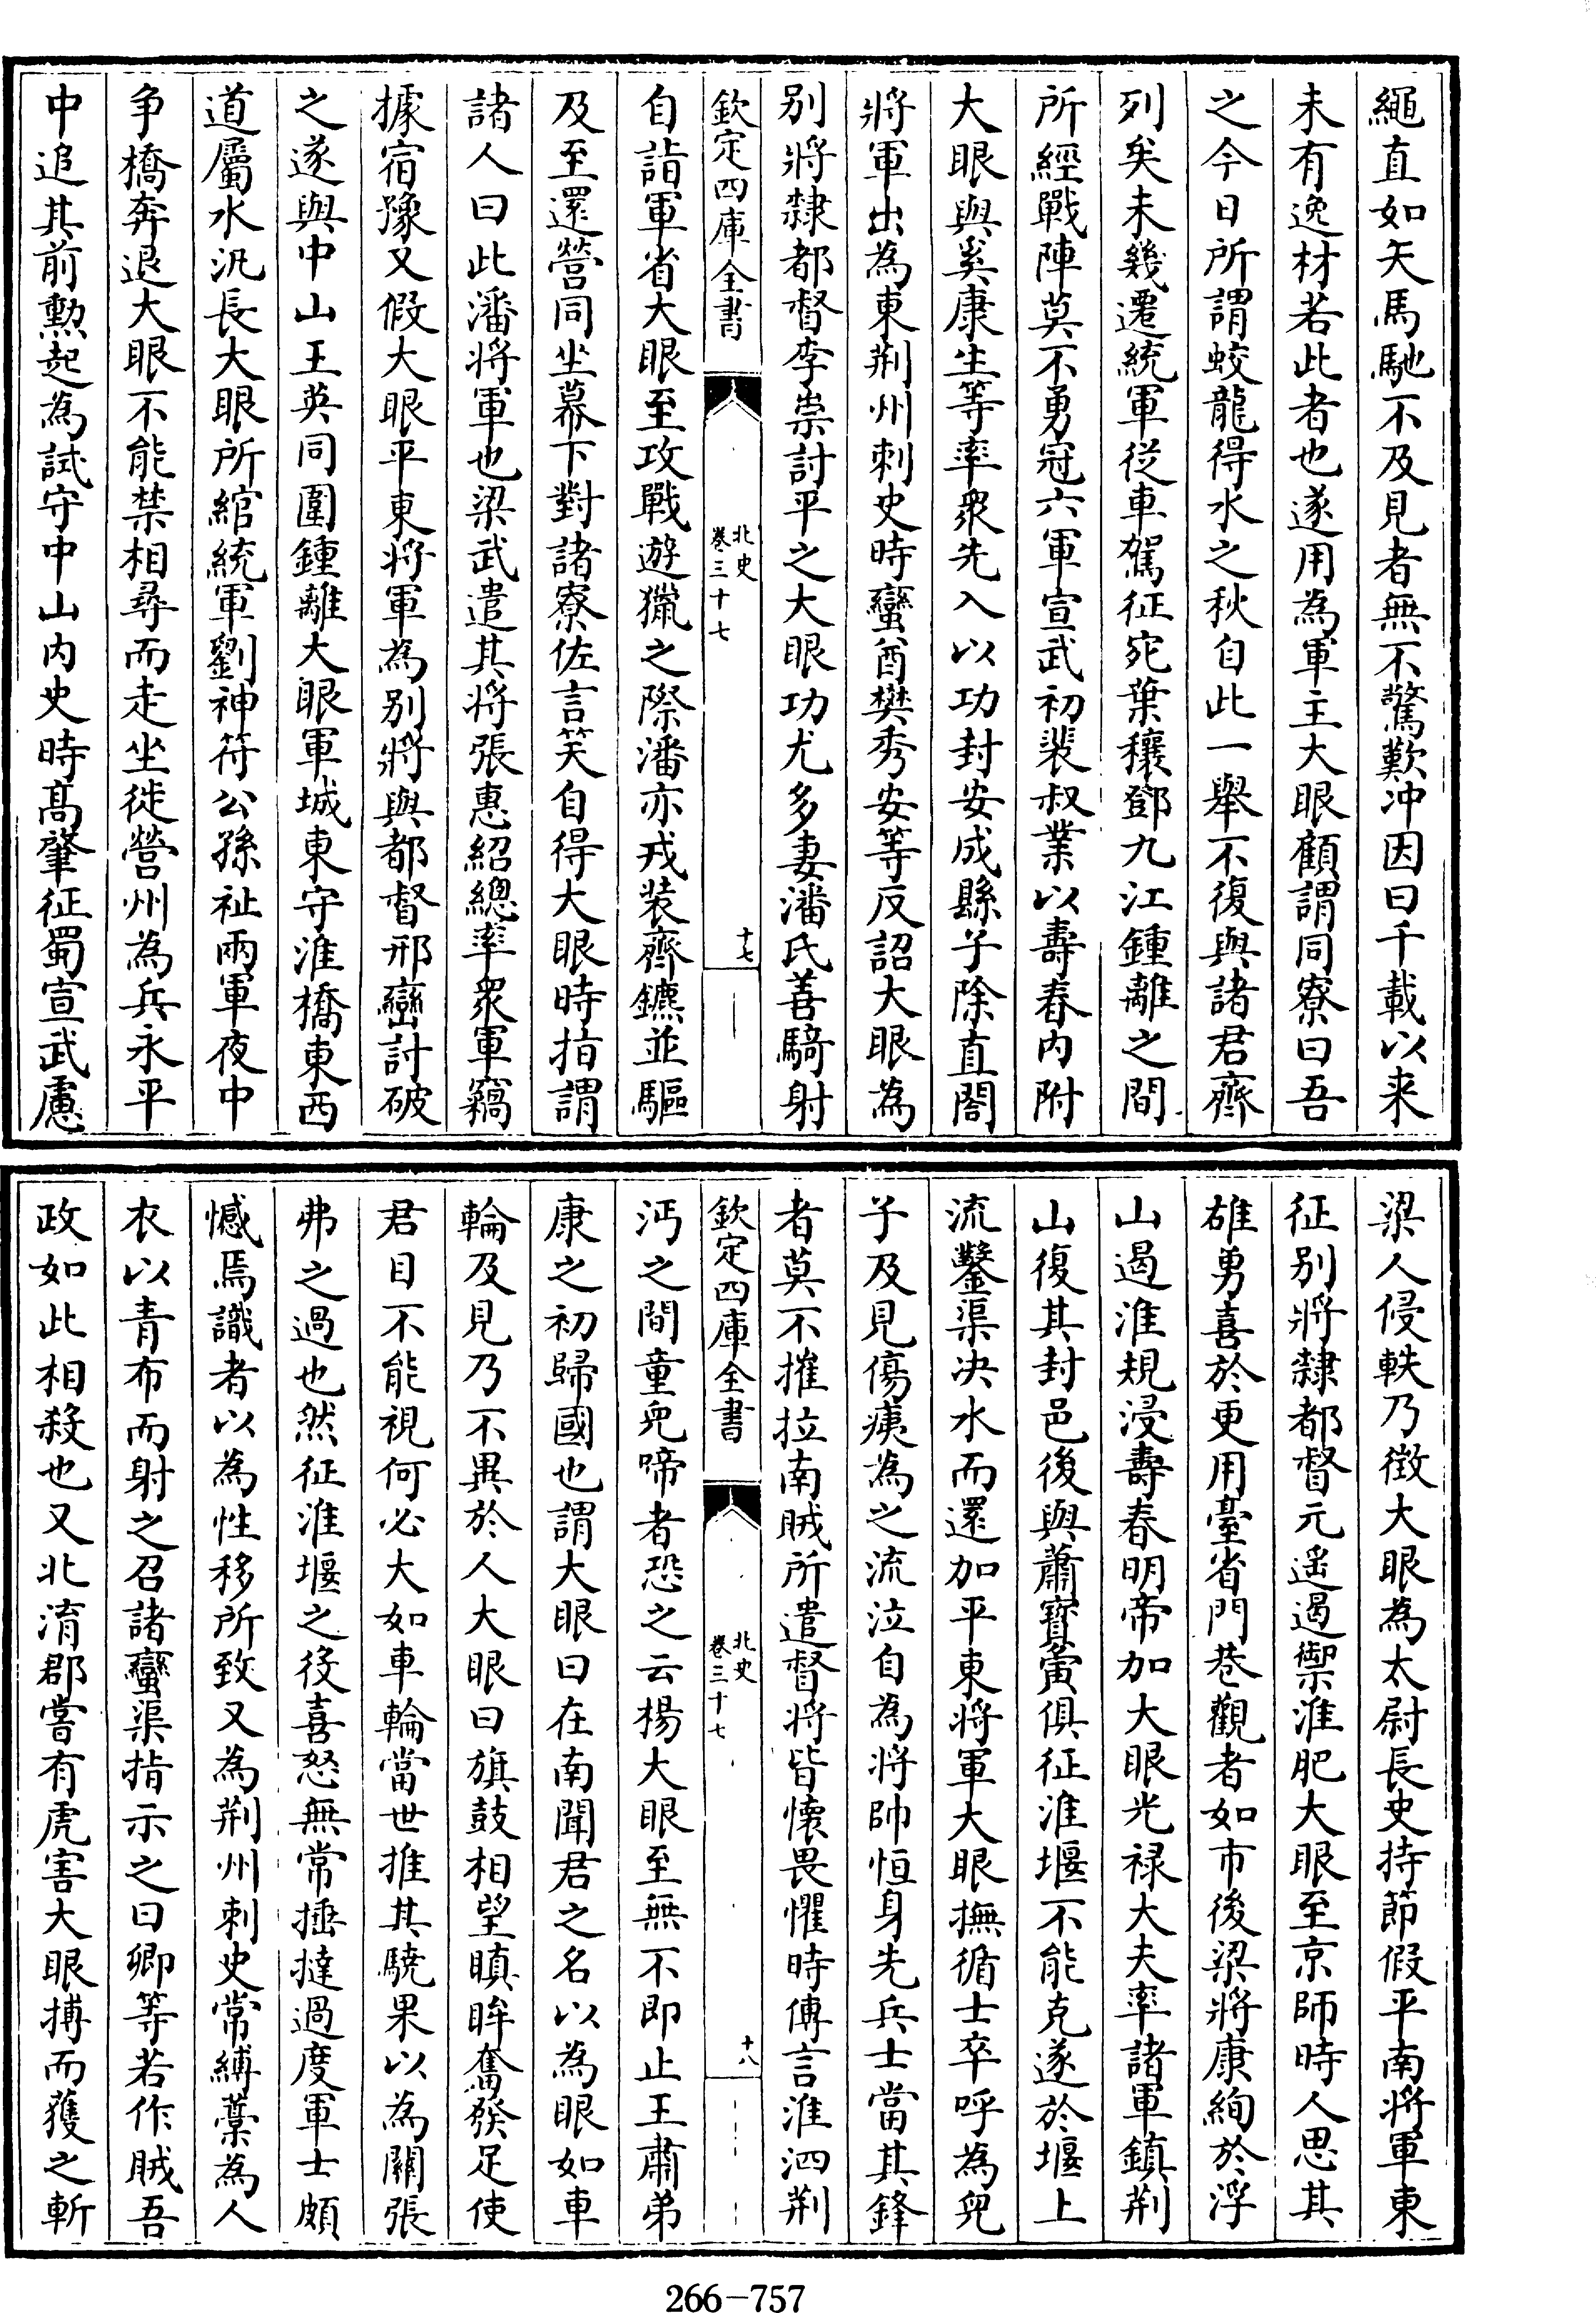 繩直如矢馬馳不及見者無不驚歎冲因曰千載以来
未有逸材若此者也遂用為軍主大眼顧謂同寮曰吾
之今日所謂蛟龍得水之秋自此一舉不復與諸君齊
列矣未幾遷統軍從車駕征宛葉穰鄧九江鍾離之間
所經戰陣莫不勇冠六軍宣武初裴叔業以壽春内附
大眼與奚康生等率衆先入以功封安成縣子除直閤
將軍出為東荆州刺史時蠻酋樊秀安等反詔大眼為
别將隸都督李崇討平之大眼功尤多妻潘氏善騎射
欽定四庫全書
北史
卷三十七
十七
自詣軍省大眼至攻戰遊獵之際潘亦戎装齊鑣並驅
及至還營同坐幕下對諸寮佐言笑自得大眼時指謂
諸人曰此潘將軍也梁武遣其將張惠紹總率衆軍竊
據宿豫又假大眼平東將軍為别將與都督邢巒討破
之遂與中山王英同圍鍾離大眼軍城東守淮橋東西
道屬水汎長大眼所綰統軍劉神符公孫祉兩軍夜中
争橋奔退大眼不能禁相尋而走坐徙營州為兵永平
中追其前勲起為試守中山内史時髙肇征蜀宣武慮
梁人侵軼乃徴大眼為太尉長史持節假平南將軍東
征别將隸都督元遥遏禦淮肥大眼至京師時人思其
雄勇喜於更用臺省門巷觀者如市後梁將康絢於浮
山遏淮規浸壽春明帝加大眼光禄大夫率諸軍鎮荆
山復其封邑後與蕭寳夤俱征淮堰不能克遂於堰上
流鑿渠决水而還加平東將軍大眼撫循士卒呼為兒
子及見傷痍為之流泣自為將帥恒身先兵士當其鋒
者莫不摧拉南賊所遣督將皆懐畏懼時傳言淮泗荆
欽定四庫全書
北史
卷三十七
十八
沔之間童兒啼者恐之云楊大眼至無不即止王肅弟
康之初歸國也謂大眼曰在南聞君之名以為眼如車
輪及見乃不異於人大眼曰旗鼓相望瞋眸奮發足使
君目不能視何必大如車輪當世推其驍果以為關張
弗之過也然征淮堰之役喜怒無常捶撻過度軍士頗
憾焉識者以為性移所致又為荆州刺史常縛藁為人
衣以青布而射之召諸蠻渠指示之曰卿等若作賊吾
政如此相殺也又北淯郡嘗有虎害大眼搏而獲之斬
266-757